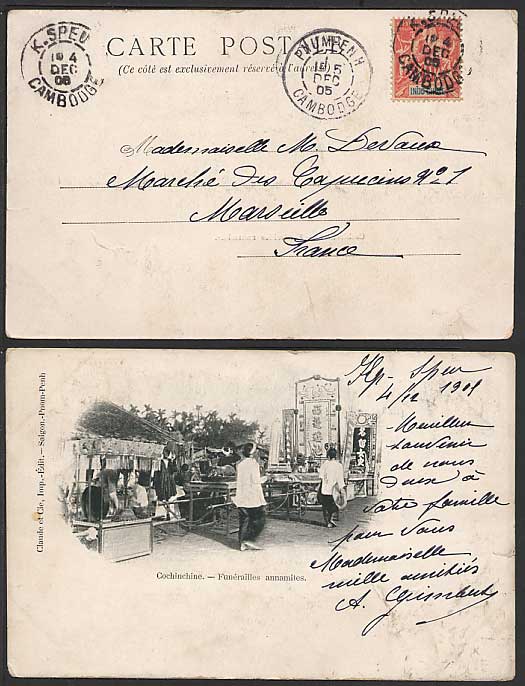 K. SPEU
19 4
DEC
05
CAMBODGE
CARTE POSTALE
(Ce côté est exclusivement réservé à l'adresse)
PNUMPENH
15
DEC
05
CAMBODGE
K. SPEU
19 4
DEC
05
CAMBODGE
INDO-CHINE
Mademoiselle M. Devaux
Marché des Capucins No 1
Marseille
France
Kg- Speu
4/12 1905
Meilleur
souvenir
de nous
deux à
votre famille
pour vous
Mademoiselle
mille amitiés
A.
Claude et Cie, Imp.-Édit. — Saigon.-Pnom-Penh
Cochinchine. — Funérailles annamites.